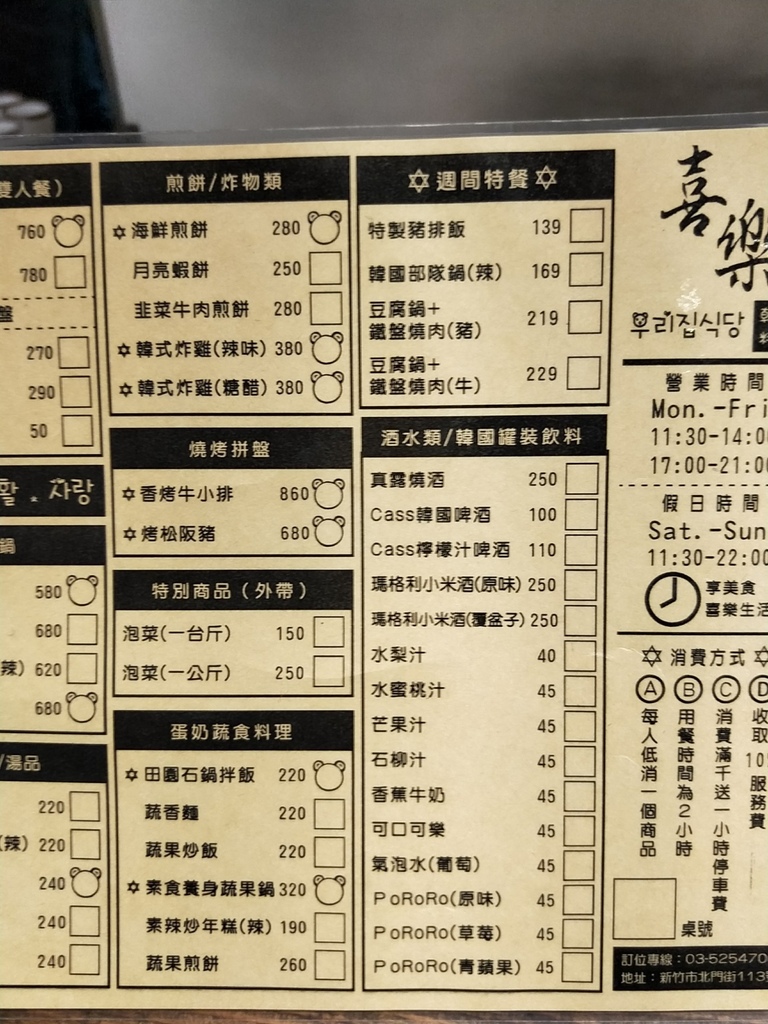 雙人餐)
760
780
盤
270
290
50
활 . 사랑
鍋
580
680
辣) 620
680
/湯品
220
(辣) 220
240
240
240
煎餅/炸物類
✡海鮮煎餅 280
月亮蝦餅 250
韭菜牛肉煎餅 280
✡韓式炸雞(辣味) 380
✡韓式炸雞(糖醋) 380
燒烤拼盤
✡香烤牛小排 860
✡烤松阪豬 680
特別商品(外帶)
泡菜(一台斤) 150
泡菜(一公斤) 250
蛋奶蔬食料理
✡田園石鍋拌飯 220
蔬香麵 220
蔬果炒飯 220
✡素食養身蔬果鍋 320
素辣炒年糕(辣) 190
蔬果煎餅 260
✡週間特餐✡
特製豬排飯 139
韓國部隊鍋(辣) 169
豆腐鍋+
鐵盤燒肉(豬) 219
豆腐鍋+
鐵盤燒肉(牛) 229
酒水類/韓國罐裝飲料
真露燒酒 250
Cass韓國啤酒 100
Cass檸檬汁啤酒 110
瑪格利小米酒(原味) 250
瑪格利小米酒(覆盆子) 250
水梨汁 40
水蜜桃汁 45
芒果汁 45
石柳汁 45
香蕉牛奶 45
可口可樂 45
氣泡水(葡萄) 45
PoRoRo(原味) 45
PoRoRo(草莓) 45
PoRoRo(青蘋果) 45
喜樂
우리집식당
營業時間
Mon.-Fri
11:30-14:0
17:00-21:0
假日時間
Sat.-Sun
11:30-22:00
享美食
喜樂生活
✡消費方式✡
Ⓐ每人低消一個商品
Ⓑ用餐時間為2小時
Ⓒ消費滿千送一小時停車費
Ⓓ收取10 服務費
桌號
訂位專線：03-525470
地址：新竹市北門街113